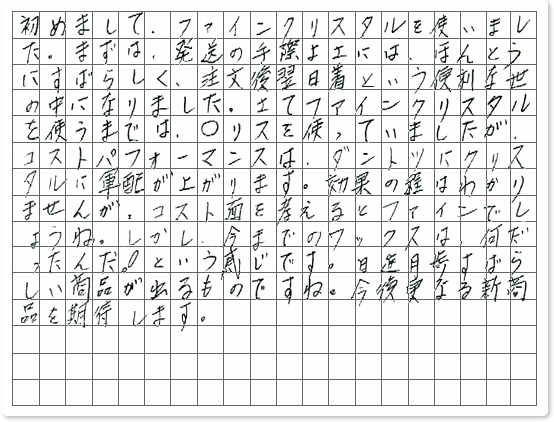 初めまして、ファインクリスタルを使いまし
た。まずは、発送の手際よさには、ほんとう
にすばらしく、注文後翌日着という便利な世
の中になりました。さてファインクリスタル
を使うまでは、〇リスを使っていましたが、
コストパフォーマンスは、ダントツにクリス
タルに軍配が上がります。効果の程はわかり
ませんが、コスト面を考えるとファインでし
ょうね。しかし、今までのワックスは、何だ
ったんだ!という感じです。日進月歩すばら
しい商品が出るものですね。今後更なる新商
品を期待します。